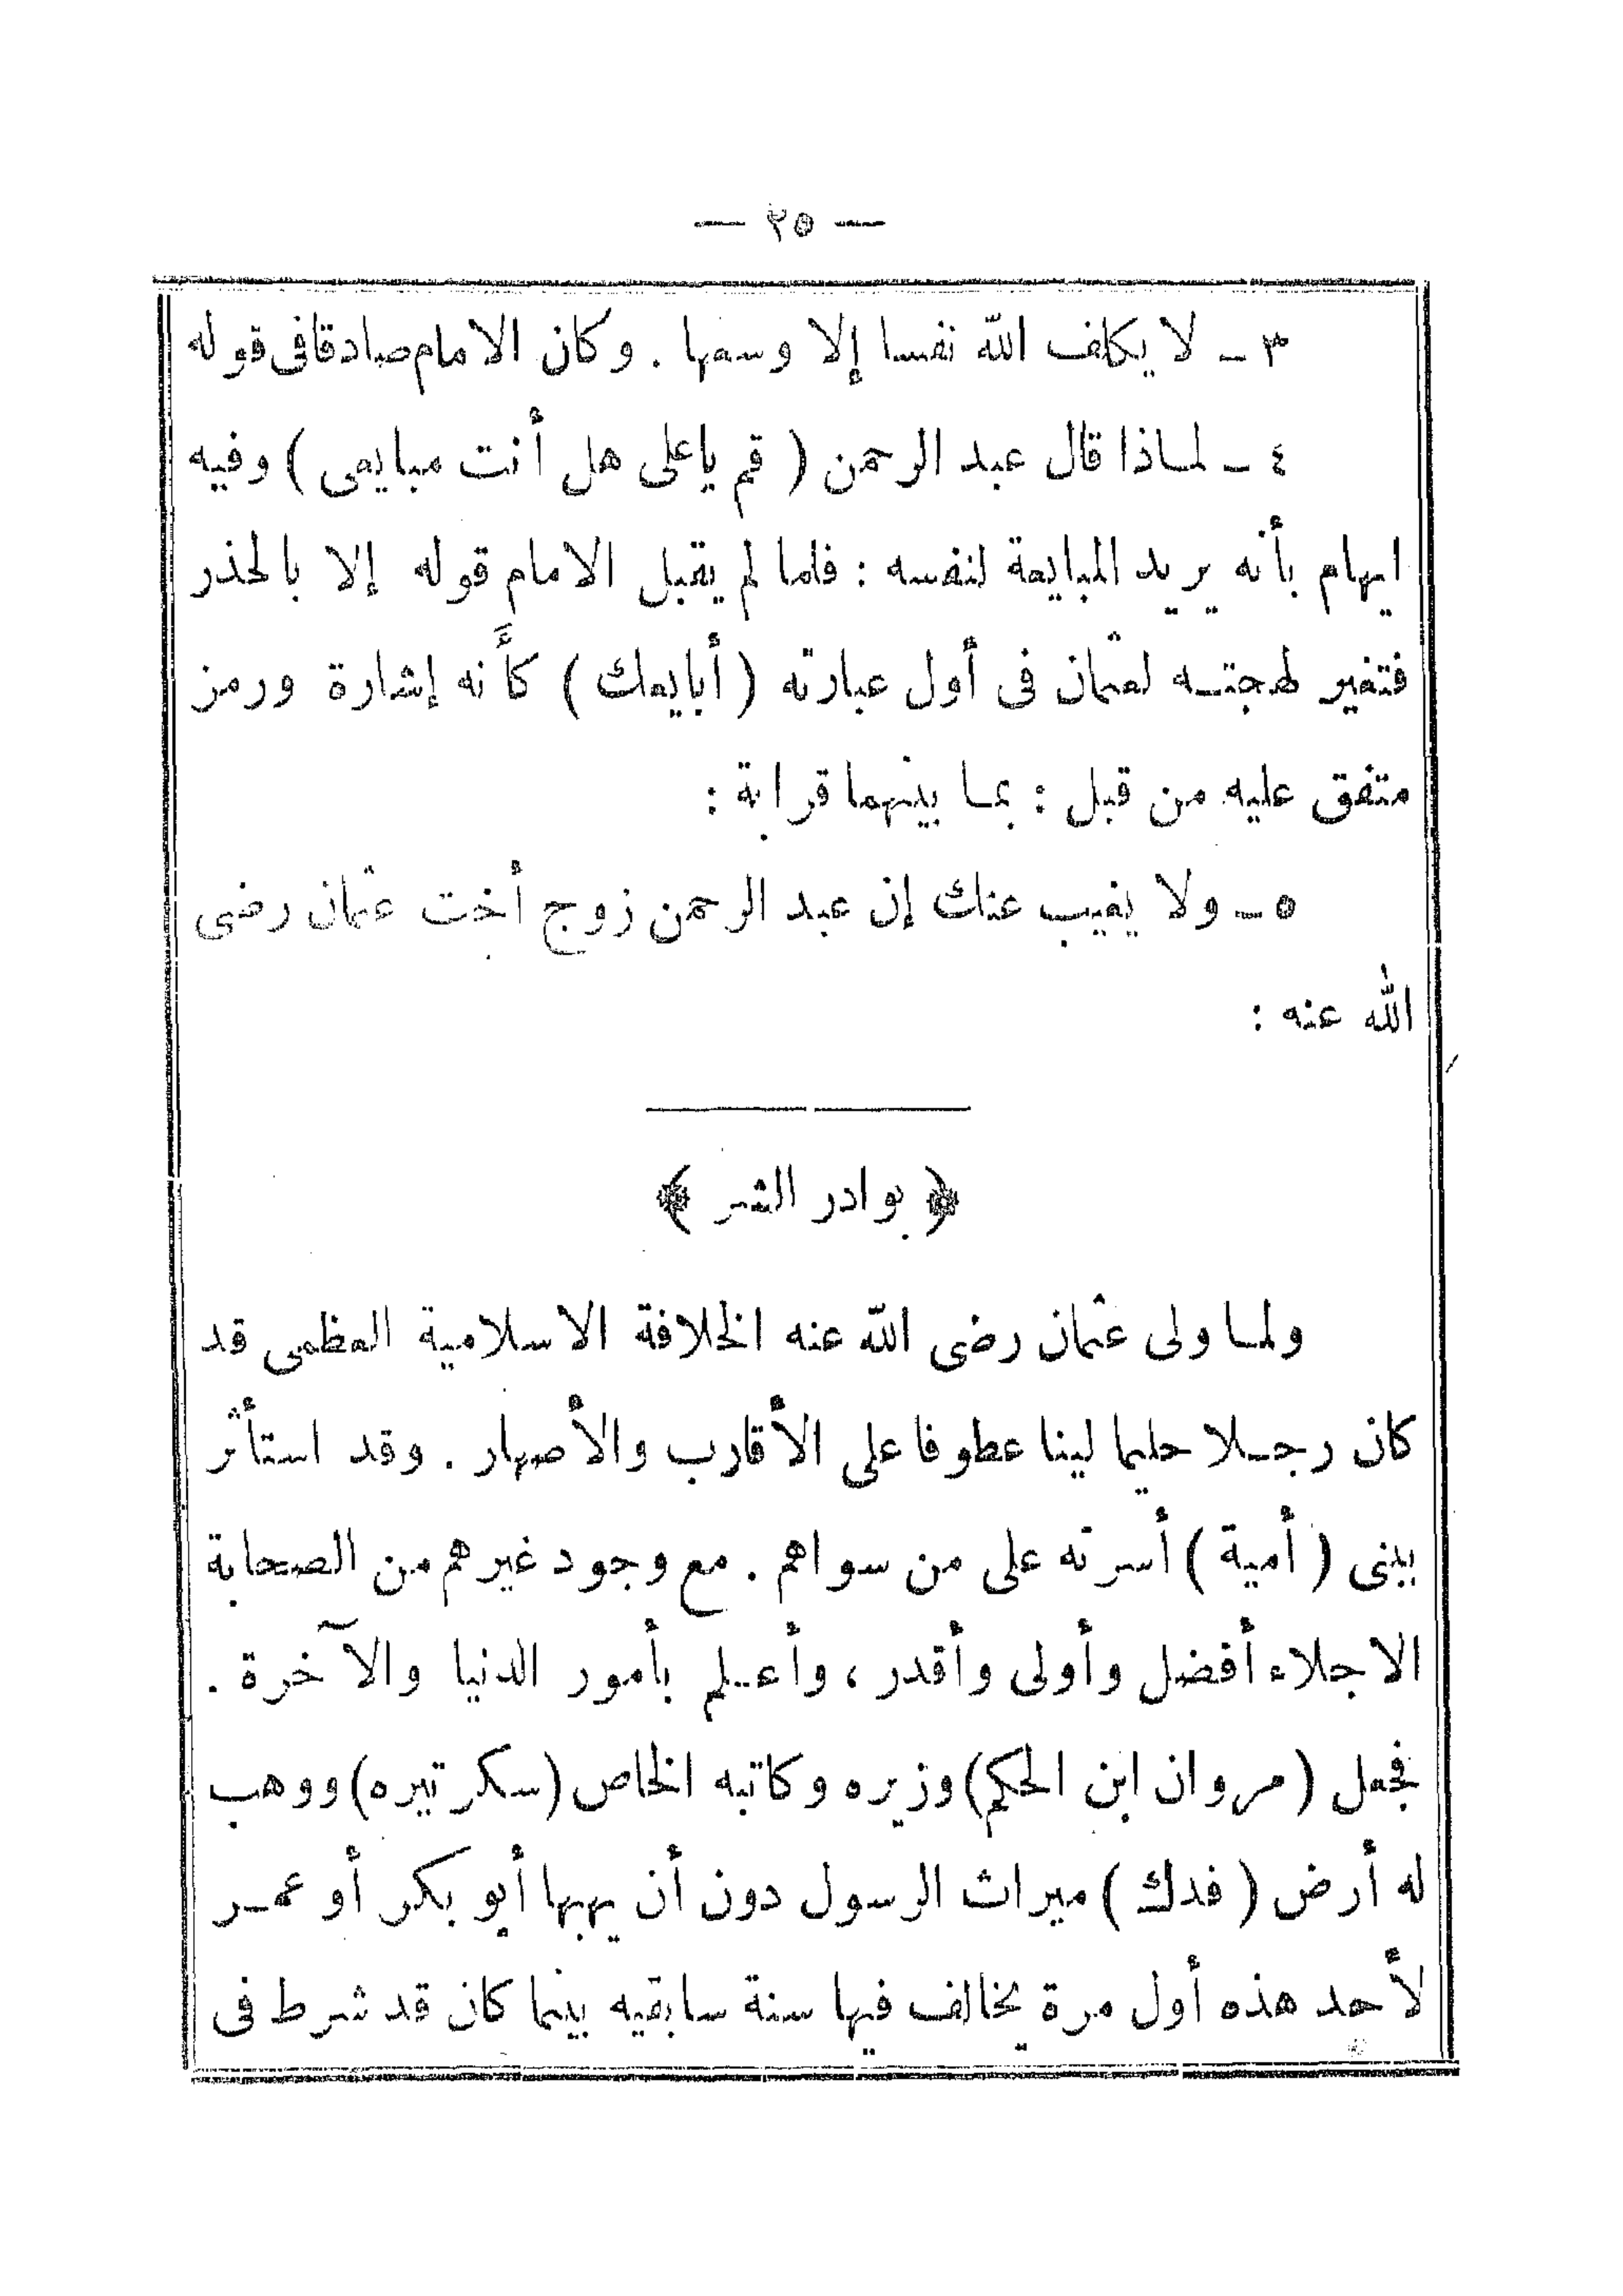 — ٢٥ —
٣ — لا يكلف الله نفسا إلا وسعها . وكان الامام صادقا فى قوله
٤ — لماذا قال عبد الرحمن ( قم ياعلى هل أنت مبايعى ) وفيه
ايهام بأنه يريد المبايعة لنفسه : فلما لم يقبل الامام قوله إلا بالحذر
فتغير لهجتـه لعثمان فى أول عبارته ( أبايعك ) كأنه إشارة ورمز
متفق عليه من قبل : بمـا بينهما قرابة :
٥ — ولا يغيب عنك إن عبد الرحمن زوج أخت عثمان رضى
الله عنه :
﴿ بوادر الشر ﴾
ولمـا ولى عثمان رضى الله عنه الخلافة الاسلامية العظمى قد
كان رجـلا حليما لينا عطوفا على الأقارب والأصهار . وقد استأثر
ببنى ( أمية ) أسرته على من سواهم . مع وجود غيرهم من الصحابة
الاجلاء أفضل وأولى وأقدر ، وأعـلم بأمور الدنيا والآخرة .
فجعل ( مروان ابن الحكم ) وزيره وكاتبه الخاص ( سكرتيره ) ووهب
له أرض ( فدك ) ميراث الرسول دون أن يهبها أبو بكر أو عمـر
لأحد هذه أول مرة يخالف فيها سنة سابقيه بينما كان قد شرط فى